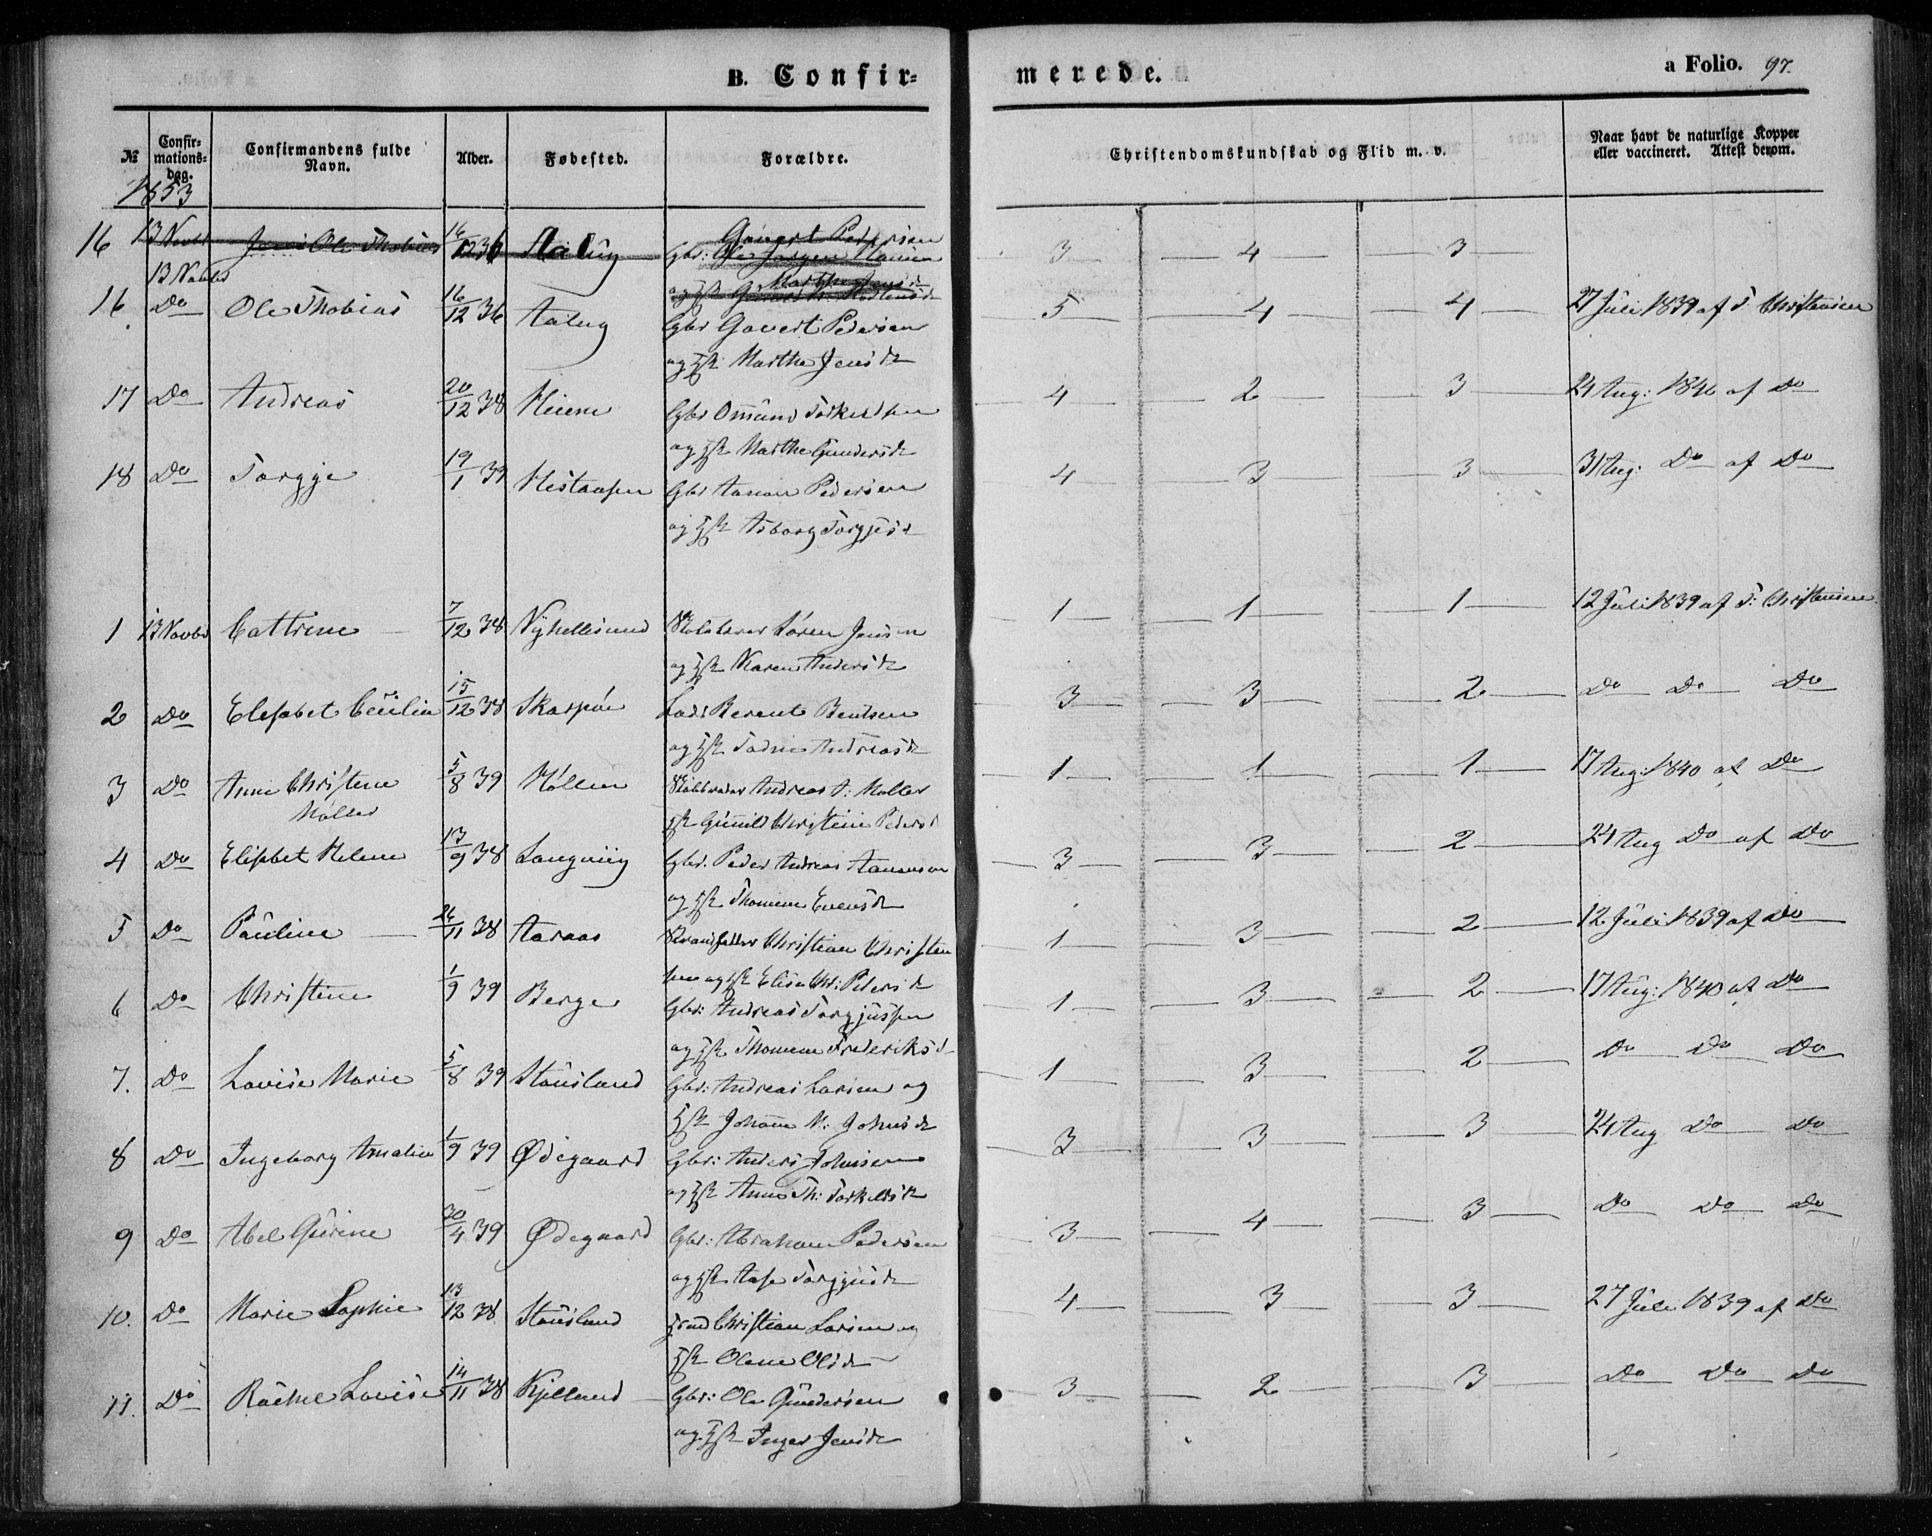 B. Confir=
merede.
a Folio. 97.
№ Confir-mations-dag. Confirmandens fulde Navn. Alder. Fødested. Forældre. Christendomskundskab og Flid m. v. Naar havt de naturlige Kopper eller vaccineret. Attest derom.
1853
16 13 Novbr Ole Thobias 16/12 36 3 4 3
Govert Pedersen
13 Novbr
16 Do Ole Thobias 16/12 36 Aalug Gbr Govert Pedersen 5 4 4 27 Juli 1839 af T. Christensen
og Hst Marthe Jensdr
17 Do Andreas 20/12 38 Heiene Gbr Omund Torkeldsen 4 2 3 24 Aug: 1840 af Do
og Hst Marthe Gundersdr
18 Do Torgje 19/1 39 Gbr Aanon Pedersen 4 3 3 31 Aug: Do af Do
og Hst Asborg Torgjesd
1 13 Novbr Cathrine 7/12 38 Nyhellesund Søren Jensen 1 1 1 12 Juli 1839 af T. Christensen
og Hst Karen Andersdr
2 Do Elisabet Cecilia 15/12 38 Skarpøe Lods Berent Bentsen 3 3 2 Do Do Do
og Hst Andreasdr
3 Do Anne Christine Møller 5/8 39 Høllen Andreas T. Møller 1 1 1 17 Aug: 1840 af Do
Hst Gunild Christine Pedersd
4 Do Elisbet Helene 13/9 38 Langviig Gbr. Peder Andreas Aanensen 3 3 2 24 Aug Do af Do
og Hst Thomine Evensdr
5 Do Pauline 26/11 38 Aaraas Strandsidder Christian Christen 1 3 2 12 Juli 1839 af Do
sen og Hst Elise Chr: Pedersdr
6 Do Christine 1/9 39 Berge Gbr: Andreas Torgjussen 1 3 2 17 Aug: 1840 af Do
og Hst Thomine Frederiksd
7. Do Lovise Marie 5/8 39 Stausland Gbr: Andreas Larsen og 1 3 2 Do Do Do
Hst Johanne M: Johnsdr
8 Do Ingeborg Amalia 1/9 39 Ødegaard Gbr: Anders Johnsen 3 3 3 24 Aug Do Do
og Hst Anne Th: Torkeldsdr
9 Do Abel Gurine 30/4 39 Ødegaard Gbr: Abraham Pedersen 3 4 3 Do Do Do
og Hst Aase Torgjusdr
10. Do Marie Sophie 13/12 38 Stausland Christian Larsen og 4 3 3 27 Juli 1839 af Do
Hst Olene Olsdr
11. Do Rachel Lovise 14/11 38 Kjelland Gbr: Ole Gundersen 3 2 3 Do Do Do
og Hst Inger Jensdr